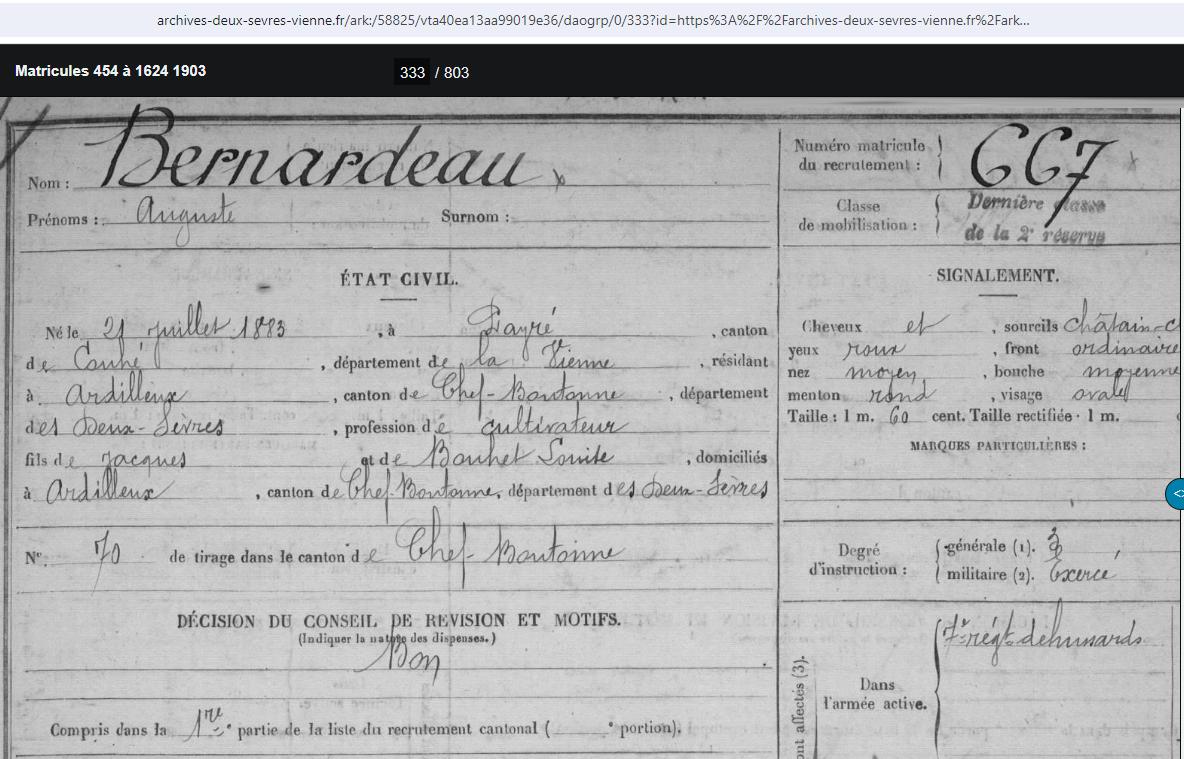 archives-deux-sevres-vienne.fr/ark:/58825/vta40ea13aa99019e36/daogrp/0/333?id=https%3A%2F%2Farchives-deux-sevres-vienne.fr%2Fark...
Matricules 454 à 1624 1903
333 / 803
Nom : Bernardeau
Prénoms : Auguste Surnom :
Numéro matricule du recrutement : 667
Classe de mobilisation : Dernière classe de la 2e réserve
ÉTAT CIVIL.
Né le 21 juillet 1883, à Payré, canton
de Couhé, département de la Vienne, résidant
à Ardilleux, canton de Chef-Boutonne, département
des Deux-Sèvres, profession de cultivateur
fils de Jacques et de Bouhet Louise, domiciliés
à Ardilleux, canton de Chef-Boutonne, département des Deux-Sèvres
N° 70 de tirage dans le canton de Chef-Boutonne
DÉCISION DU CONSEIL DE REVISION ET MOTIFS.
(Indiquer la nature des dispenses.)
Bon
Compris dans la 1re partie de la liste du recrutement cantonal ( portion).
SIGNALEMENT.
Cheveux et, sourcils châtain-c
yeux roux, front ordinaire
nez moyen, bouche moyenne
menton rond, visage ovale
Taille : 1 m. 60 cent. Taille rectifiée 1 m.
MARQUES PARTICULIÈRES :
Degré d'instruction :
générale (1). 3
militaire (2). Exercé
ont affectés (3).
Dans l'armée active.
7e régt de hussards